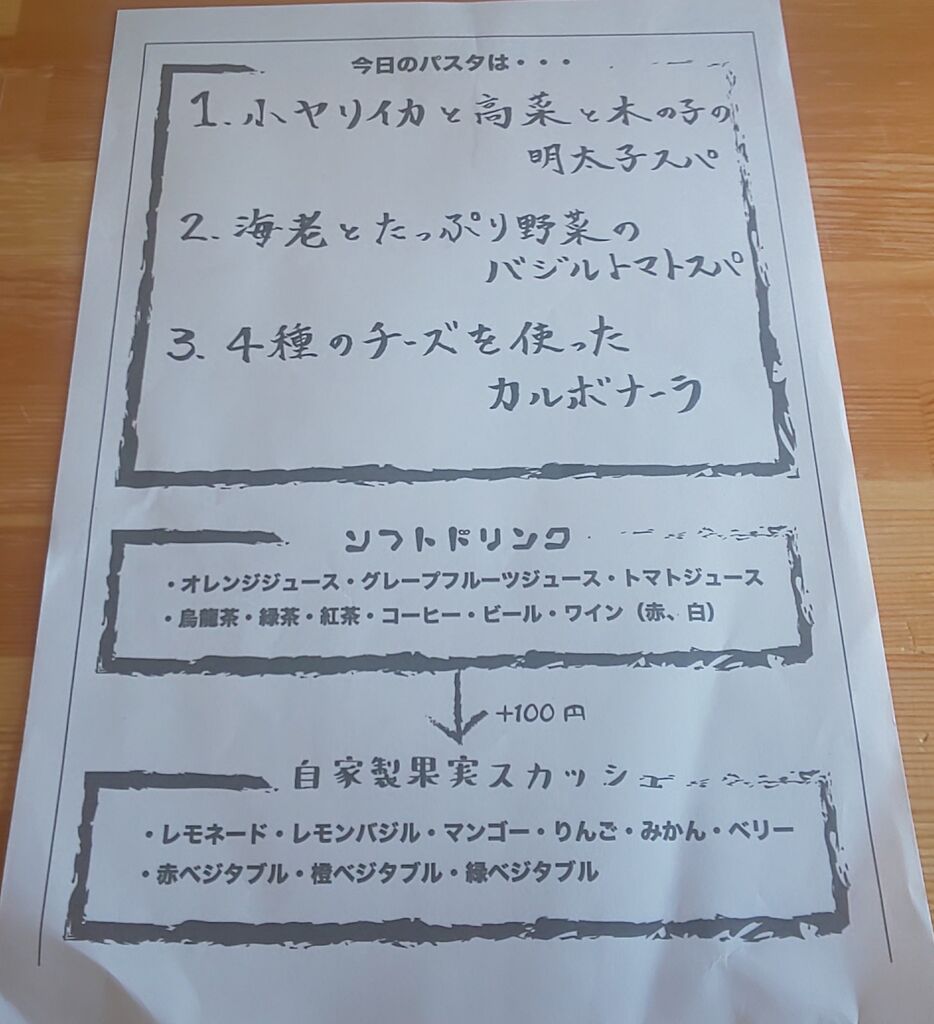 今日のパスタは・・・
1. 小ヤリイカと高菜と木の子の
明太子スパ
2. 海老とたっぷり野菜の
バジルトマトスパ
3. 4種のチーズを使った
カルボナーラ
ソフトドリンク
・オレンジジュース・グレープフルーツジュース・トマトジュース
・烏龍茶・緑茶・紅茶・コーヒー・ビール・ワイン（赤、白）
+100 円
自家製果実スカッシュ
・レモネード・レモンバジル・マンゴー・りんご・みかん・ベリー
・赤ベジタブル・橙ベジタブル・緑ベジタブル